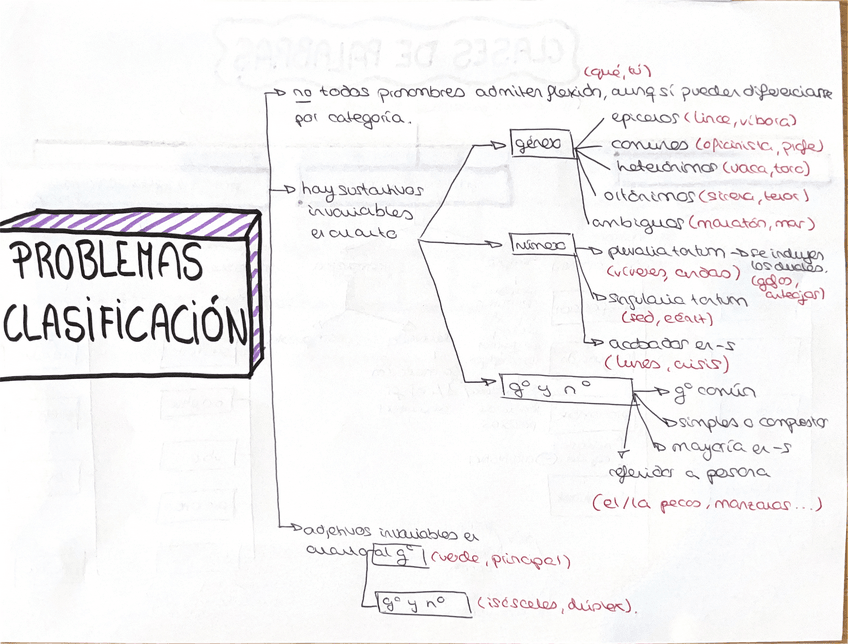 PROBLEMAS
CLASIFICACIÓN
(qué, tú)
no todos pronombres admiten flexión, aunq sí pueden diferenciarse
por categoría.
hay sustantivos
invariables
en cuanto
género
epicenos (lince, víbora)
comunes (oficinista, pijfe)
heterónimos (vaca, toro)
(sirena, tenor)
ambiguos (maratón, mar)
número
pluralia tantum → se incluyen
los duales.
(víveres, andas) (gafas,
anteojos)
singularia tantum
(sed, cénit)
acabados en -s
(lunes, crisis)
gº y nº
gº común
simples o compuestos
mayoría en -s
referidos a persona
(el/la pecas, manzanas...)
adjetivos invariables en
cuanto al gº (verde, principal)
gº y nº (isósceles, dúplex).